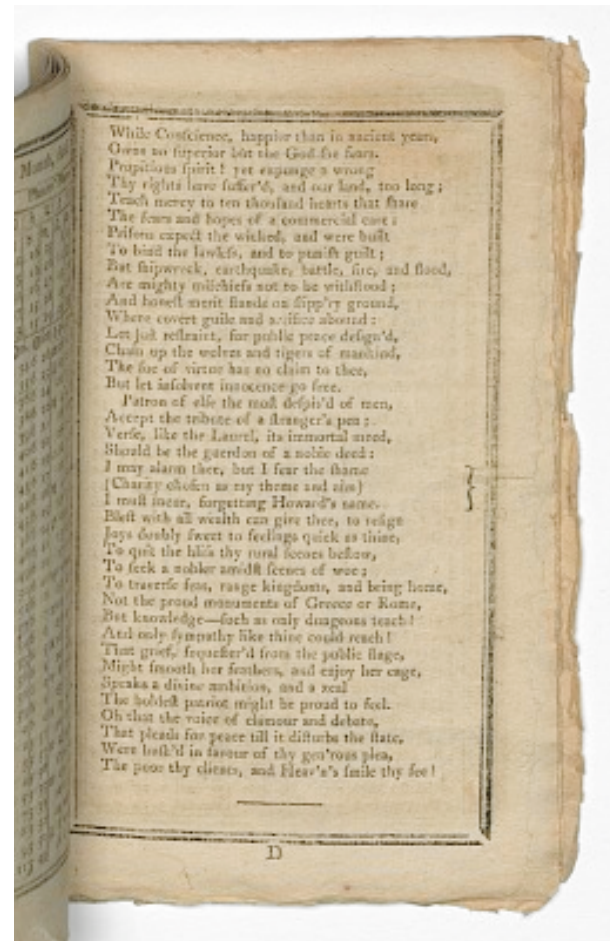 While Conſcience, happier than in ancient years,
Owns no ſuperior but the God ſhe fears.
Propitious ſpirit! yet expunge a wrong
Thy rights have ſuffer'd, and our land, too long;
Teach mercy to ten thouſand hearts that ſhare
The fears and hopes of a commercial care:
Priſons expect the wicked, and were built
To bind the lawleſs, and to puniſh guilt;
But ſhipwreck, earthquake, battle, fire, and flood,
Are mighty miſchiefs not to be withſtood;
And honeſt merit ſtands on ſlipp'ry ground,
Where covert guile and artifice abound:
Let juſt reſtraint, for public peace deſign'd,
Chain up the wolves and tigers of mankind,
The foe of virtue has no claim to thee,
But let inſolvent innocence go free.
Patron of elſe the moſt deſpis'd of men,
Accept the tribute of a ſtranger's pen;
Verſe, like the Laurel, its immortal meed,
Should be the guerdon of a noble deed:
I may alarm thee, but I fear the ſhame
(Charity choſen as my theme and aim)
I muſt incur, forgetting Howard's name.
Bleſt with all wealth can give thee, to reſign
Joys doubly ſweet to feelings quick as thine,
To quit the bliſs thy rural ſcenes beſtow,
To ſeek a nobler amidſt ſcenes of woe;
To traverſe ſeas, range kingdoms, and bring home,
Not the proud monuments of Greece or Rome,
But knowledge—ſuch as only dungeons teach!
And only ſympathy like thine could reach!
That grief, ſequeſter'd from the public ſtage,
Might ſmooth her feathers, and enjoy her cage,
Speaks a divine ambition, and a zeal
The boldeſt patriot might be proud to feel.
Oh that the voice of clamour and debate,
That pleads for peace till it diſturbs the ſtate,
Were huſh'd in favour of thy gen'rous plea,
The poor thy clients, and Heav'n's ſmile thy fee!
D